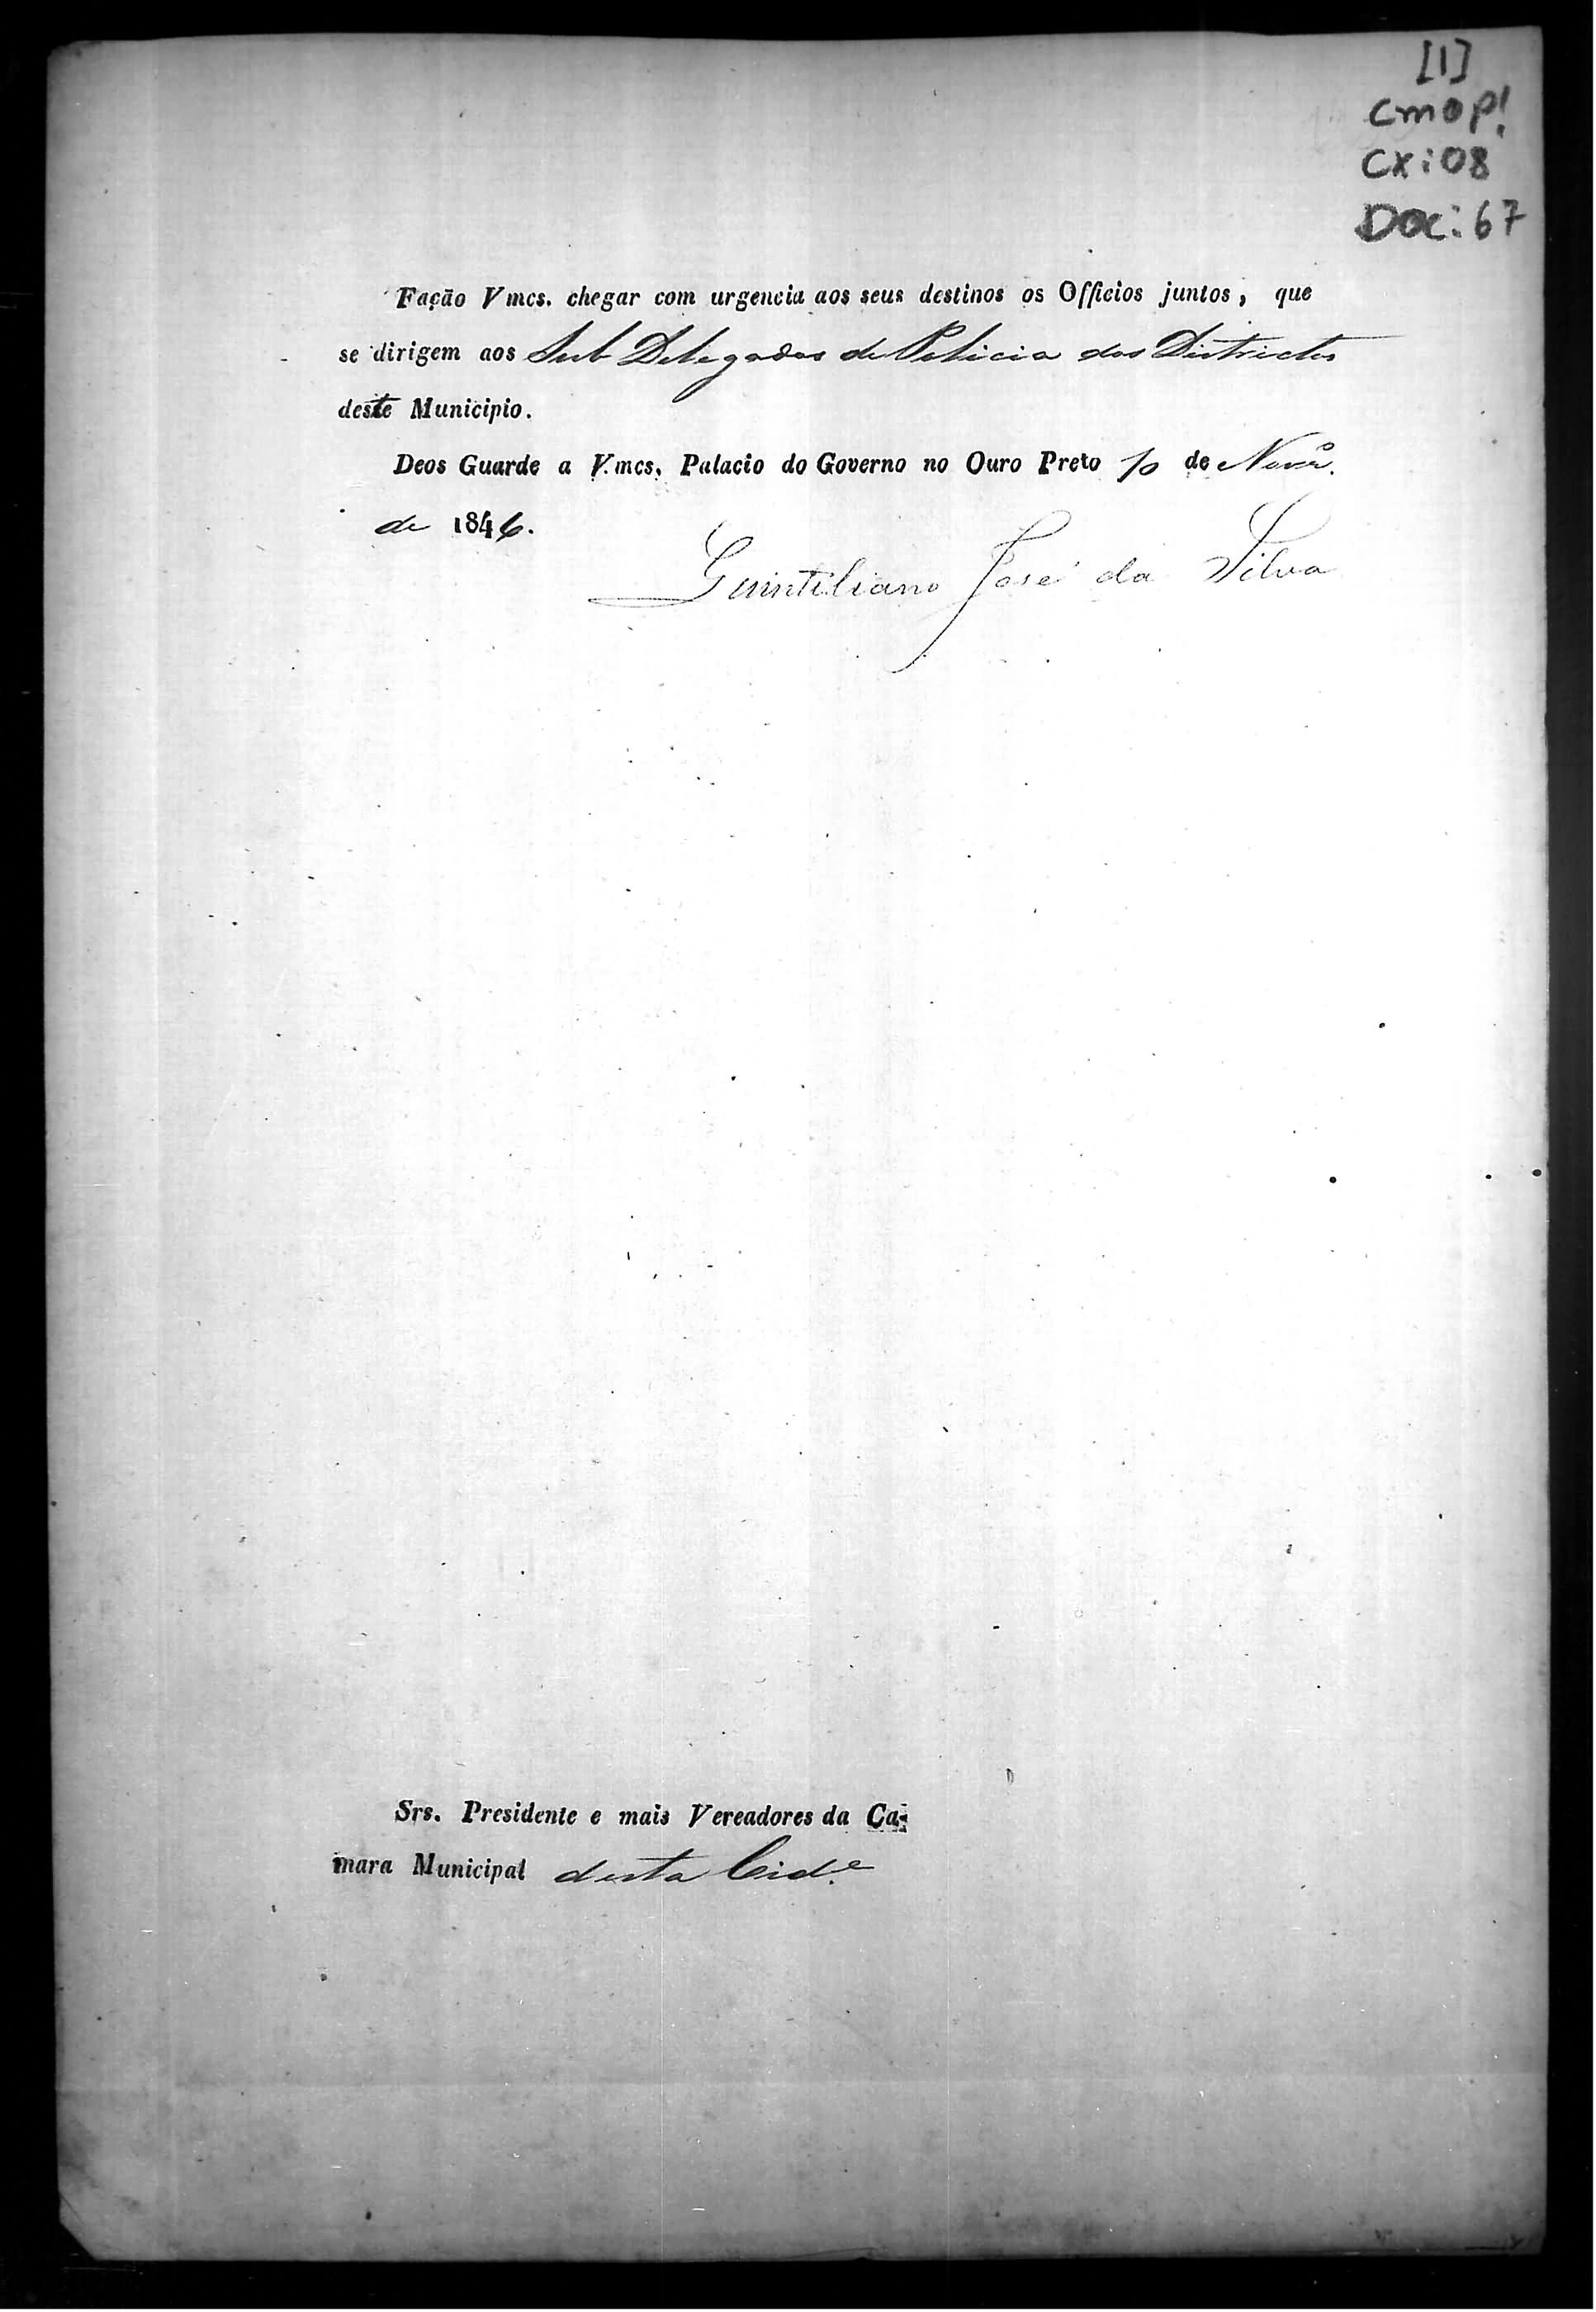 [1]
CMOP!
CX: 08
DOC: 67
Fação Vmcs. chegar com urgencia aos seus destinos os Officios juntos, que
se dirigem aos Sub Delegados de Policia dos Districtos
deste Municipio.
Deos Guarde a V.mcs. Palacio do Governo no Ouro Preto 10 de Novro.
de 1846.
Quintiliano José da Silva
Srs. Presidente e mais Vereadores da Ca-
mara Municipal desta Cide.